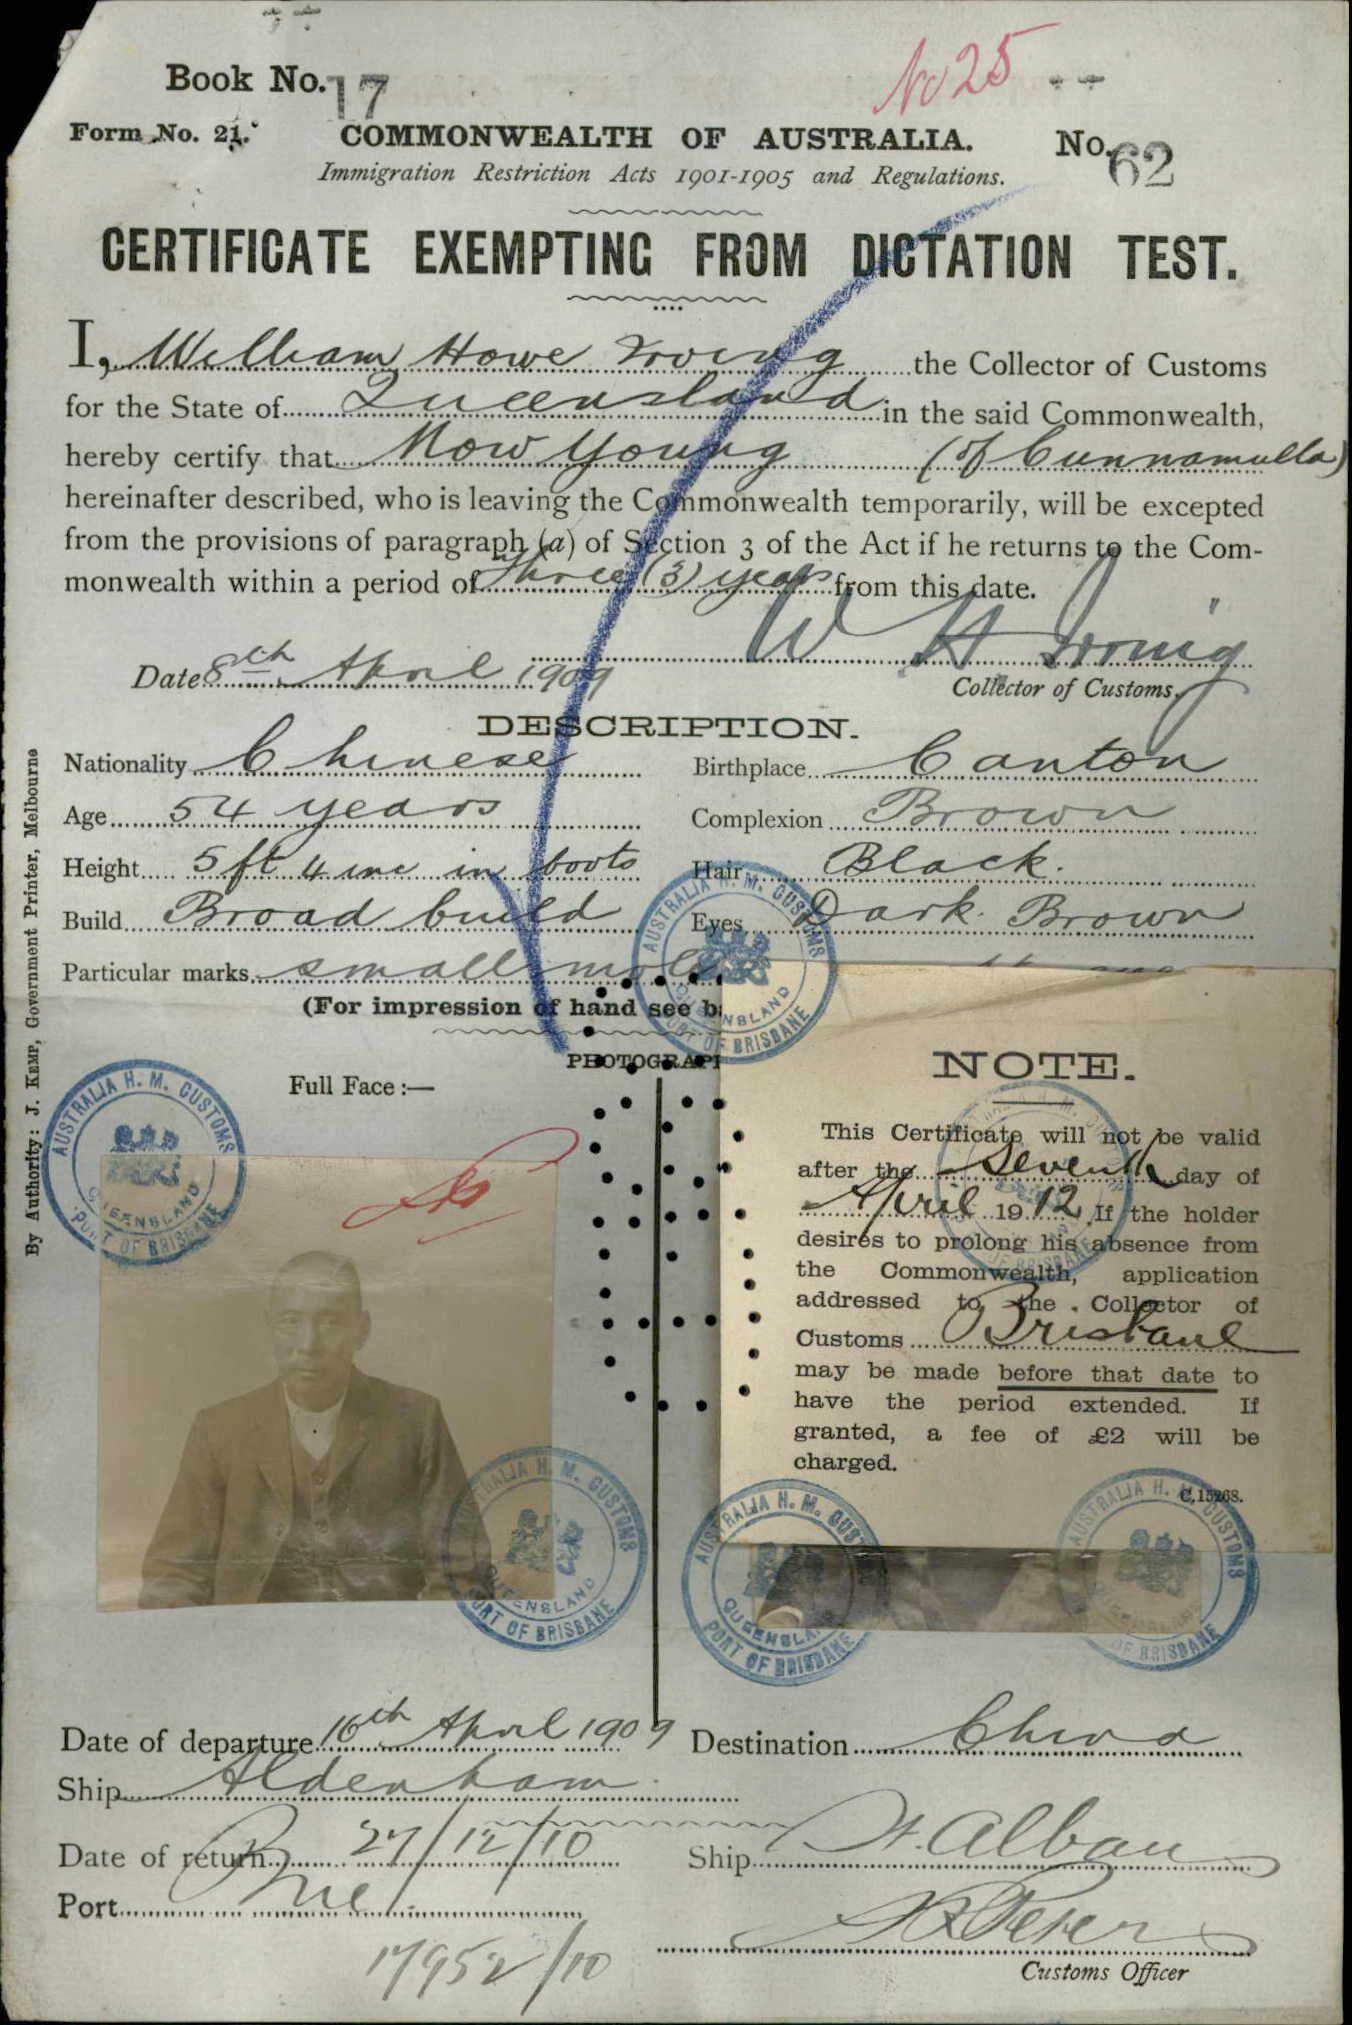 Book No. 17
No 25
Form No. 21.
COMMONWEALTH OF AUSTRALIA.
No. 62
Immigration Restriction Acts 1901-1905 and Regulations.
CERTIFICATE EXEMPTING FROM DICTATION TEST.
I, William Howe Irving the Collector of Customs
for the State of Queensland in the said Commonwealth,
hereby certify that Mow Young (of Cunnamulla)
hereinafter described, who is leaving the Commonwealth temporarily, will be excepted
from the provisions of paragraph (a) of Section 3 of the Act if he returns to the Com-
monwealth within a period of three (3) years from this date.
W H Irving
Date 8th April 1909
Collector of Customs.
DESCRIPTION.
Nationality Chinese
Birthplace Canton
Age 54 years
Complexion Brown
Height 5 ft 4 ins in boots
Hair Black.
Build Broad build
Eyes Dark Brown
Particular marks small mole
(For impression of hand see b
PHOTOGRAP
Full Face :—
By Authority: J. KEMP, Government Printer, Melbourne
AUSTRALIA H. M. CUSTOMS
QUEENSLAND
PORT OF BRISBANE
AUSTRALIA H. M. CUSTOMS
QUEENSLAND
PORT OF BRISBANE
NOTE.
This Certificate will not be valid
after the Seventh day of
April 1912. If the holder
desires to prolong his absence from
the Commonwealth, application
addressed to the Collector of
Customs Brisbane
may be made before that date to
have the period extended. If
granted, a fee of £2 will be
charged.
C.15268.
AUSTRALIA H. M. CUSTOMS
QUEENSLAND
PORT OF BRISBANE
AUSTRALIA H. M. CUST
QUEENSLA
PORT OF BRISBANE
AUSTRALIA H. M. CUSTOMS
OF BRISBANE
Date of departure 16th April 1909
Destination China
Ship Aldenham
Date of return 27/12/10
Ship St. Albans
Port Bne
Customs Officer
17952/10